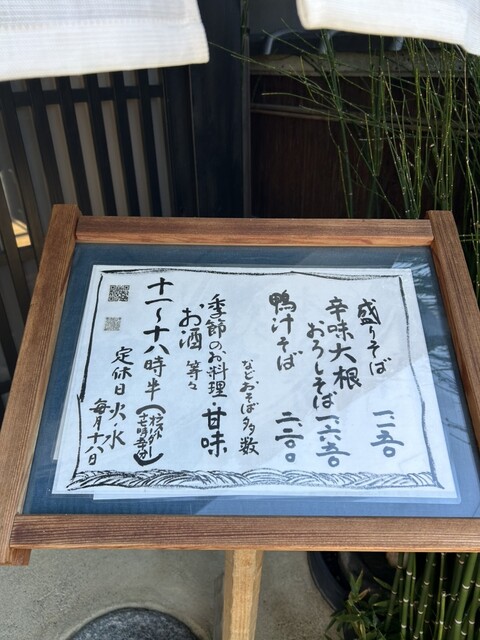 盛りそば 一一五〇
辛味大根
おろしそば 一六五〇
鴨汁そば 二二〇〇
などおそば多数
季節のお料理・甘味
お酒 等々
十一〜十八時半
定休日 火・水
毎月十八日